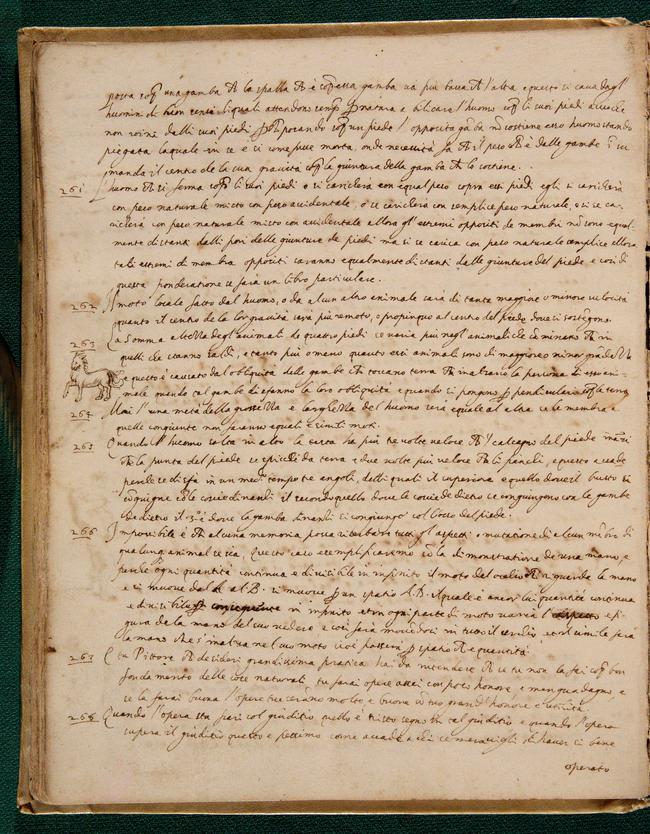 posta sop.ª una gamba la spalla è sop. essa gamba va più bassa l'altra e questo si cava dagl'
huomini di buon sensi li quali attendono semp. natura a bilicare l'huomo sop. li suoi piedi
non roini dalli suoi piedi posando sop. un piede l'opposita gāba nō sostiene esso huomo stando
piegata la quale in se è si come fusse morta, onde necessità fa il peso è dalle gambe in su
manda il centro de la sua gravità sop. la giuntura della gamba lo sostiene.
261 L'huomo si ferma sop. li suoi piedi o si caricherà con equal peso sopra essi piedi egli si caricherà
con peso naturale misto con peso accidentale, o se caricherà con semplice peso naturale, e si se ca-
richerà con peso naturale misto con accidentale allora gl'estremi oppositi de membri nō sono equal-
mente distanti dalli poli delle giunture de piedi ma si se carica con peso naturale semplice allora
tali estremi di membra oppositi saranno equalmente distanti dalle giunture del piede e così di
questa ponderatione se farà un libro particulare.
262 Il moto locale fatto dal huomo, o da alcun altro animale sarà di tanta maggiore o minore velocità
quanto il centro de la lor gravità sarà più remoto, o propinquo al centro del piede dove si sostegono.
263 La somma altezza degl'animali de quatro piedi se varia più negl'animali che cāminano in
quelli che stanno saldi, e tanto più o mano quanto essi animali sono di maggiore o minor
e questo è causato dal obliquità delle gambe toccano terra inalzano la persona di esso ani-
male quando tal gambe disfanno la loro obliquità e quando si pongano sop. la terra
264 Mai l'una metà della grossezza e larghezza del huomo serà equale al altra se le membra a
quelle congiunte non saranno equali e simili moti.
265 Quando l'huomo salta in alto la testa ha più tre volte veloce l'calcagno del piede
la punta del piede se spicchi da terra e due volte più veloce li fianchi, e questo accade
perche se disfa in un med. tempo tre angoli, delli quali il superiore e quello dove il busto si
congiugne cō le coscie dinanti il secondo quello dove le coscie de dietro se congiungono con le gambe
de dietro il 3.º è dove la gamba dinanti si congiungō col losso del piede.
266 Impossibile è alcuna memoria possa riserbare tutti gl'aspetti o mutatione di alcun mēbro di
qualunq. animal se sia, Questo caso exemplificaremo cō la dimonstratione de una mano, e
perche ogni quantità continua e divisibile in infinito il moto del ochio riguarda la mano
e si move dal A. al B. si muove un spatio A.B. il quale è ancor lui quantità continua
e divisibile conseguente in infinito et in ogni parte di moto varia l'aspetto e fi-
gura de la mano del suo vedere e così farà movendosi in tutto il cerchio et il simile farà
la mano che s'inalza nel suo moto cioè passerà spatio quantità.
267 O tu Pittore desideri grandissima pratica hai da intendere se tu non la fai sop. bon
fondamento delle cose naturali tu farai opere assai con poco honore, e men guadagno, e
se la farai buona l'opere tue serāno molte e buone cō tuo grand'honore e utilità.
268 Quando l'opera sta pari col giuditio quello è tristo segno in tal giuditio e quando l'opera
supera il giuditio questo è pessimo come accade a chi se meraviglia d'haver si bene
operato